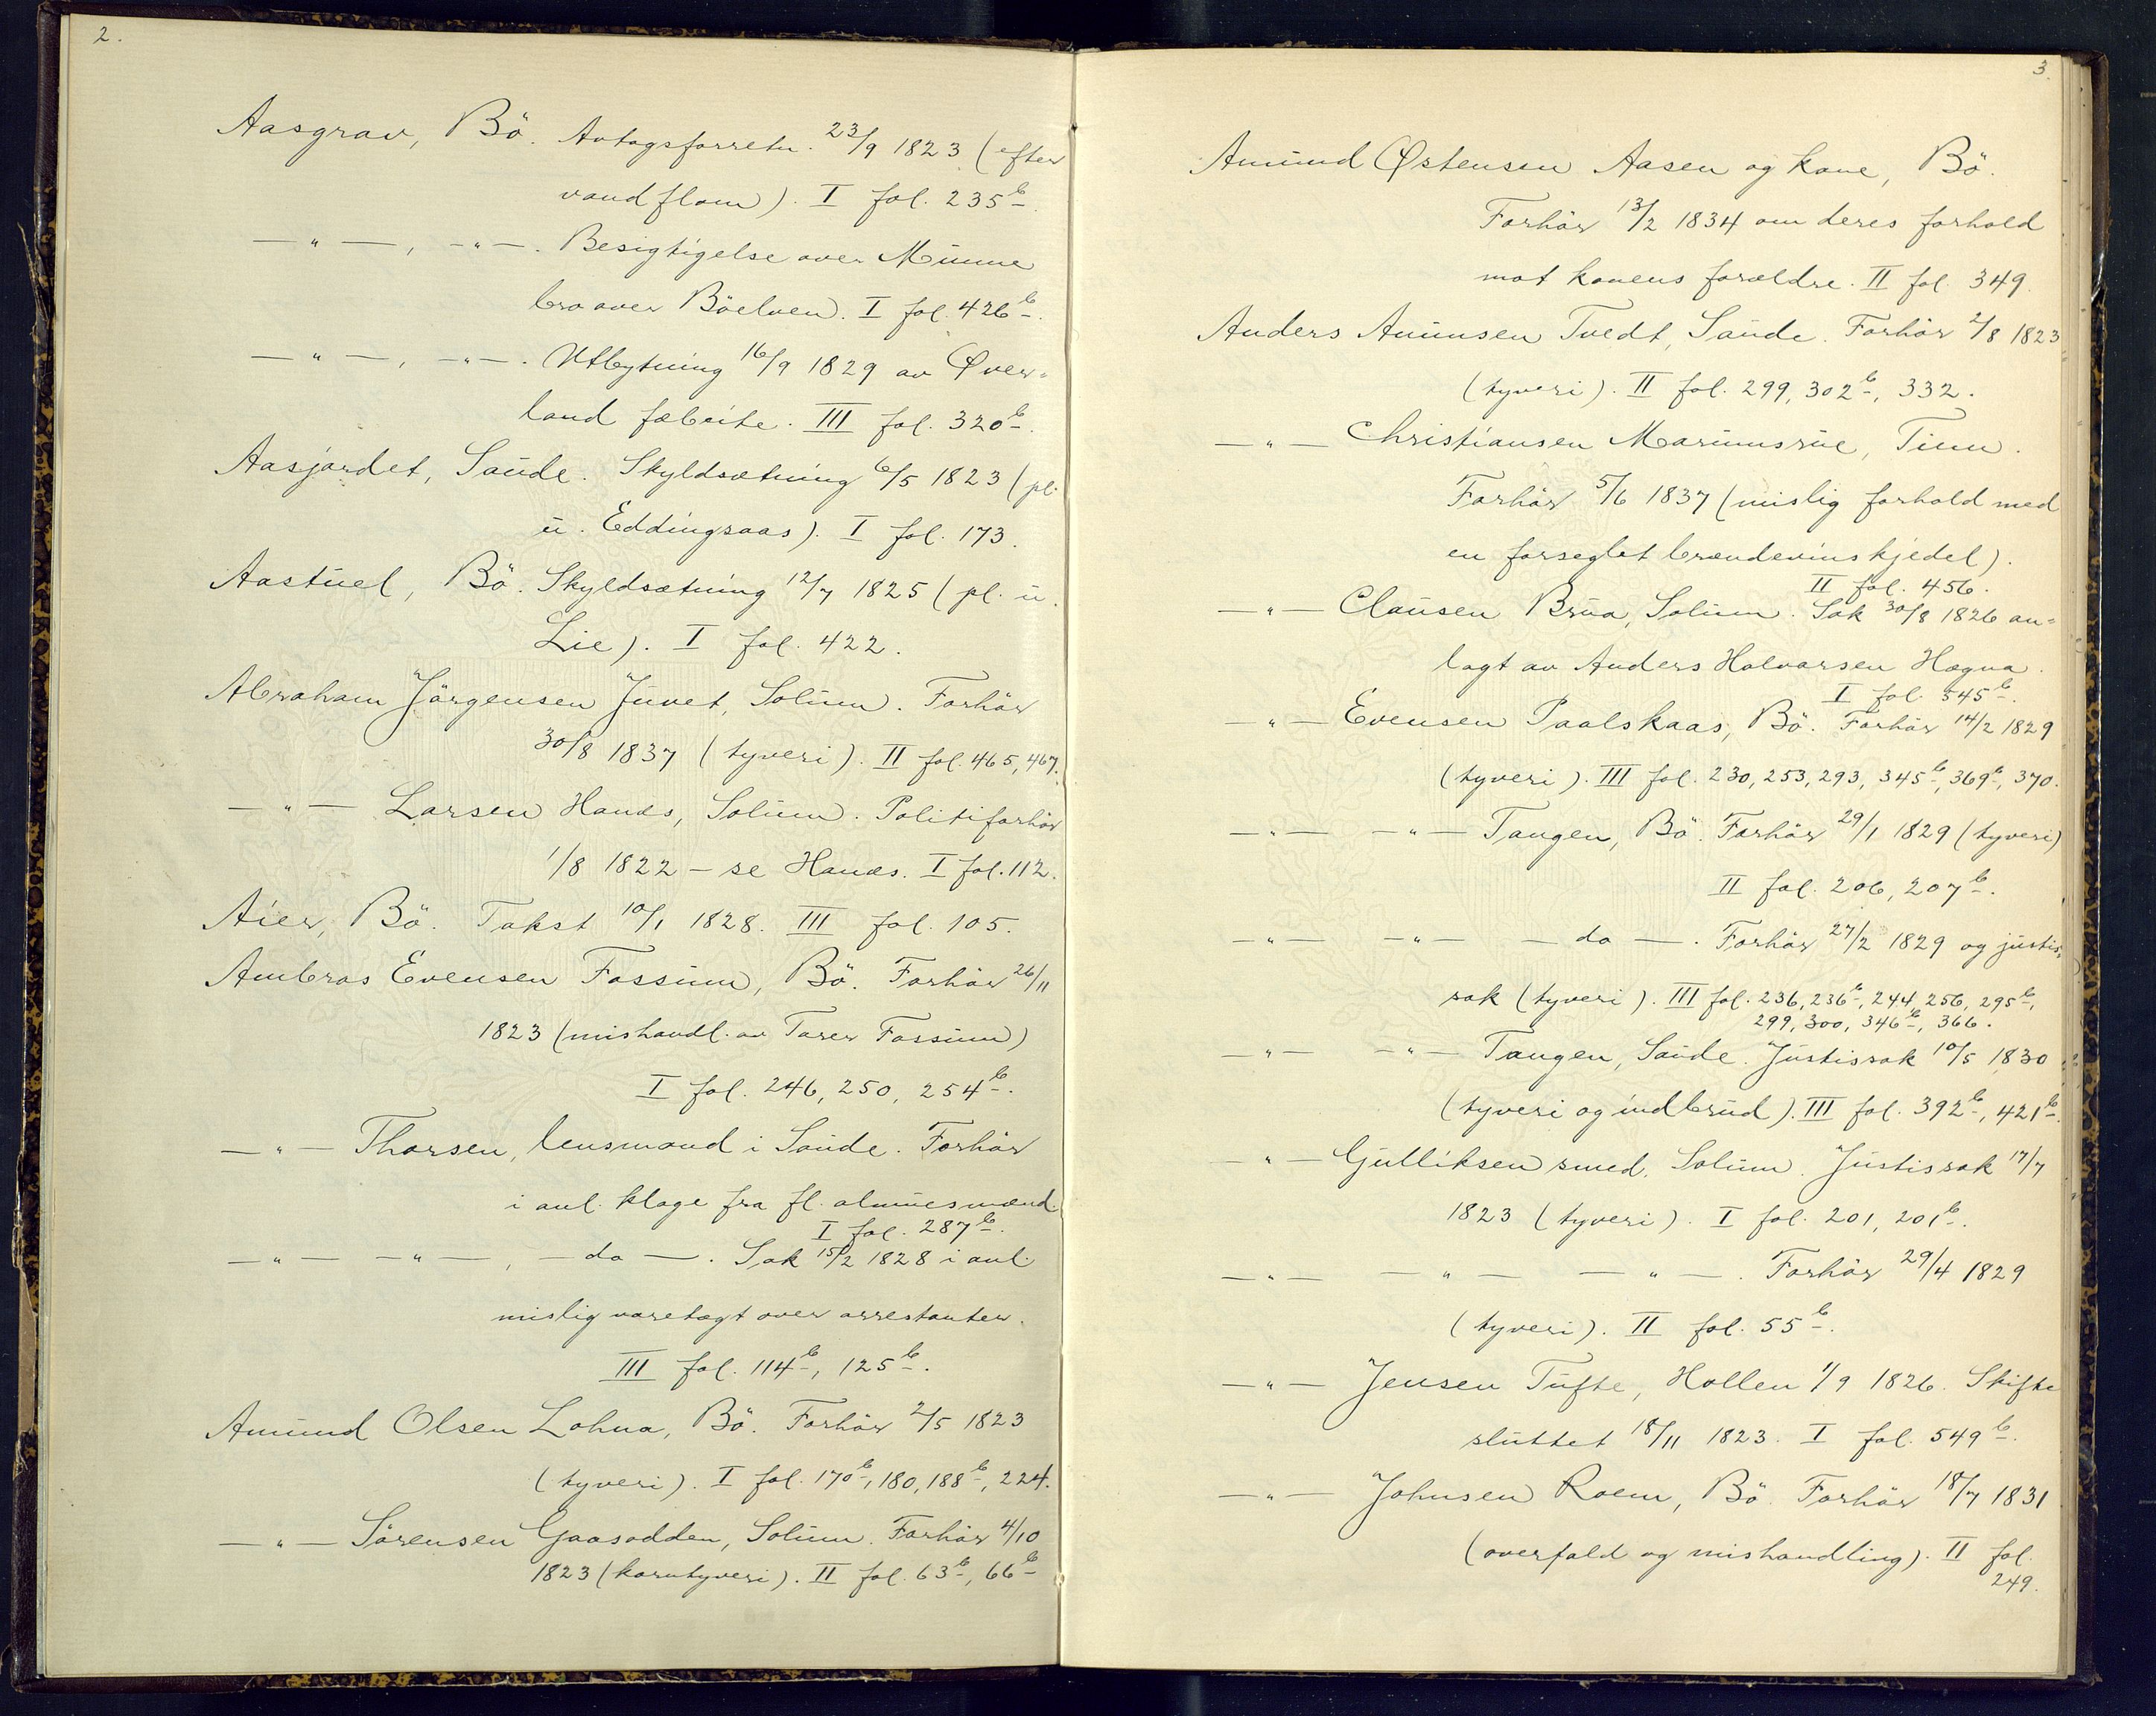 2.
Aasgrav, Bö. Avtagsforretn. 23/9 1823 (efter
vandflom). I fol. 235b.
— " —, — " —. Besigtigelse over Munne
bro over Böelven. I fol. 426b.
— " —, — " —. Utbytning 16/9 1829 av Øver-
land fæbeite. III fol. 320b.
Aasjordet, Saude. Skyldsætning 6/5 1823 (pl.
u. Eddingsaas). I fol. 173.
Aastuel, Bö. Skyldsætning 12/7 1825 (pl. u.
Lie). I fol. 422.
Abraham Jörgensen Juvet, Solum. Forhör
30/8 1837 (tyveri). II fol. 465, 467.
— " — Larsen Hanæs, Solum. Politiforhör
1/8 1822 – se Hanæs. I fol. 112.
Aier, Bö. Takst 10/1 1828. III fol. 105.
Ambros Evensen Fossum, Bö. Forhör 26/11
1823 (mishandl. av Tarer Fossum)
I fol. 246, 250, 254b.
— " — Thorsen, lensmand i Saude. Forhör
i anl. klage fra fl. almuesmænd.
I fol. 287b.
— " — — " —, — do —. Sak 15/2 1828 i anl.
mislig varetægt over arrestanter.
III fol. 114b, 125b.
Amund Olsen Lohna, Bö. Forhör 2/5 1823
(tyveri). I fol. 170b, 180, 188b, 224.
— " — Sörensen Gaasodden, Solum. Forhör 4/10
1823 (korntyveri). II fol. 63b, 66b
3.
Amund Østensen Aasen og kone, Bö.
Forhör 13/2 1834 om deres forhold
mot konens forældre. II fol. 349.
Anders Amunsen Tvedt, Saude. Forhör 2/8 1823
(tyveri). II fol. 299, 302b, 332.
— " — Christiansen Marumsrue, Tinn.
Forhör 5/6 1837 (mislig forhold med
en forseglet brændevinskjedel).
II fol. 456.
— " — Clausen Brua, Solum. Sak 30/8 1826 an-
lagt av Anders Halvorsen Hægna.
I fol. 545b.
— " — Evensen Paalskaas, Bö. Forhör 14/2 1829
(tyveri). III fol. 230, 253, 293, 345b, 369b, 370.
— " — — " — Tangen, Bö. Forhör 29/1 1829 (tyveri)
II fol. 206, 207b.
— " — — " — — do —. Forhör 27/2 1829 og justis-
sak (tyveri). III fol. 236, 236b, 244, 256, 295b,
299, 300, 346b, 366.
— " — — " — Tangen, Saude. Justissak 10/5 1830
(tyveri og indbrud). III fol. 392b, 421b.
— " — Gulliksen smed. Solum. Justissak 17/7
1823 (tyveri). I fol. 201, 201b.
— " — — " — — " —. Forhör 29/4 1829
(tyveri). II fol. 55b.
— " — Jensen Tufte, Hollen 1/9 1826. Skifte
sluttet 18/11 1823. I fol. 549b.
— " — Johnsen Roem, Bö. Forhör 18/7 1831
(overfald og mishandling). II fol.
249.